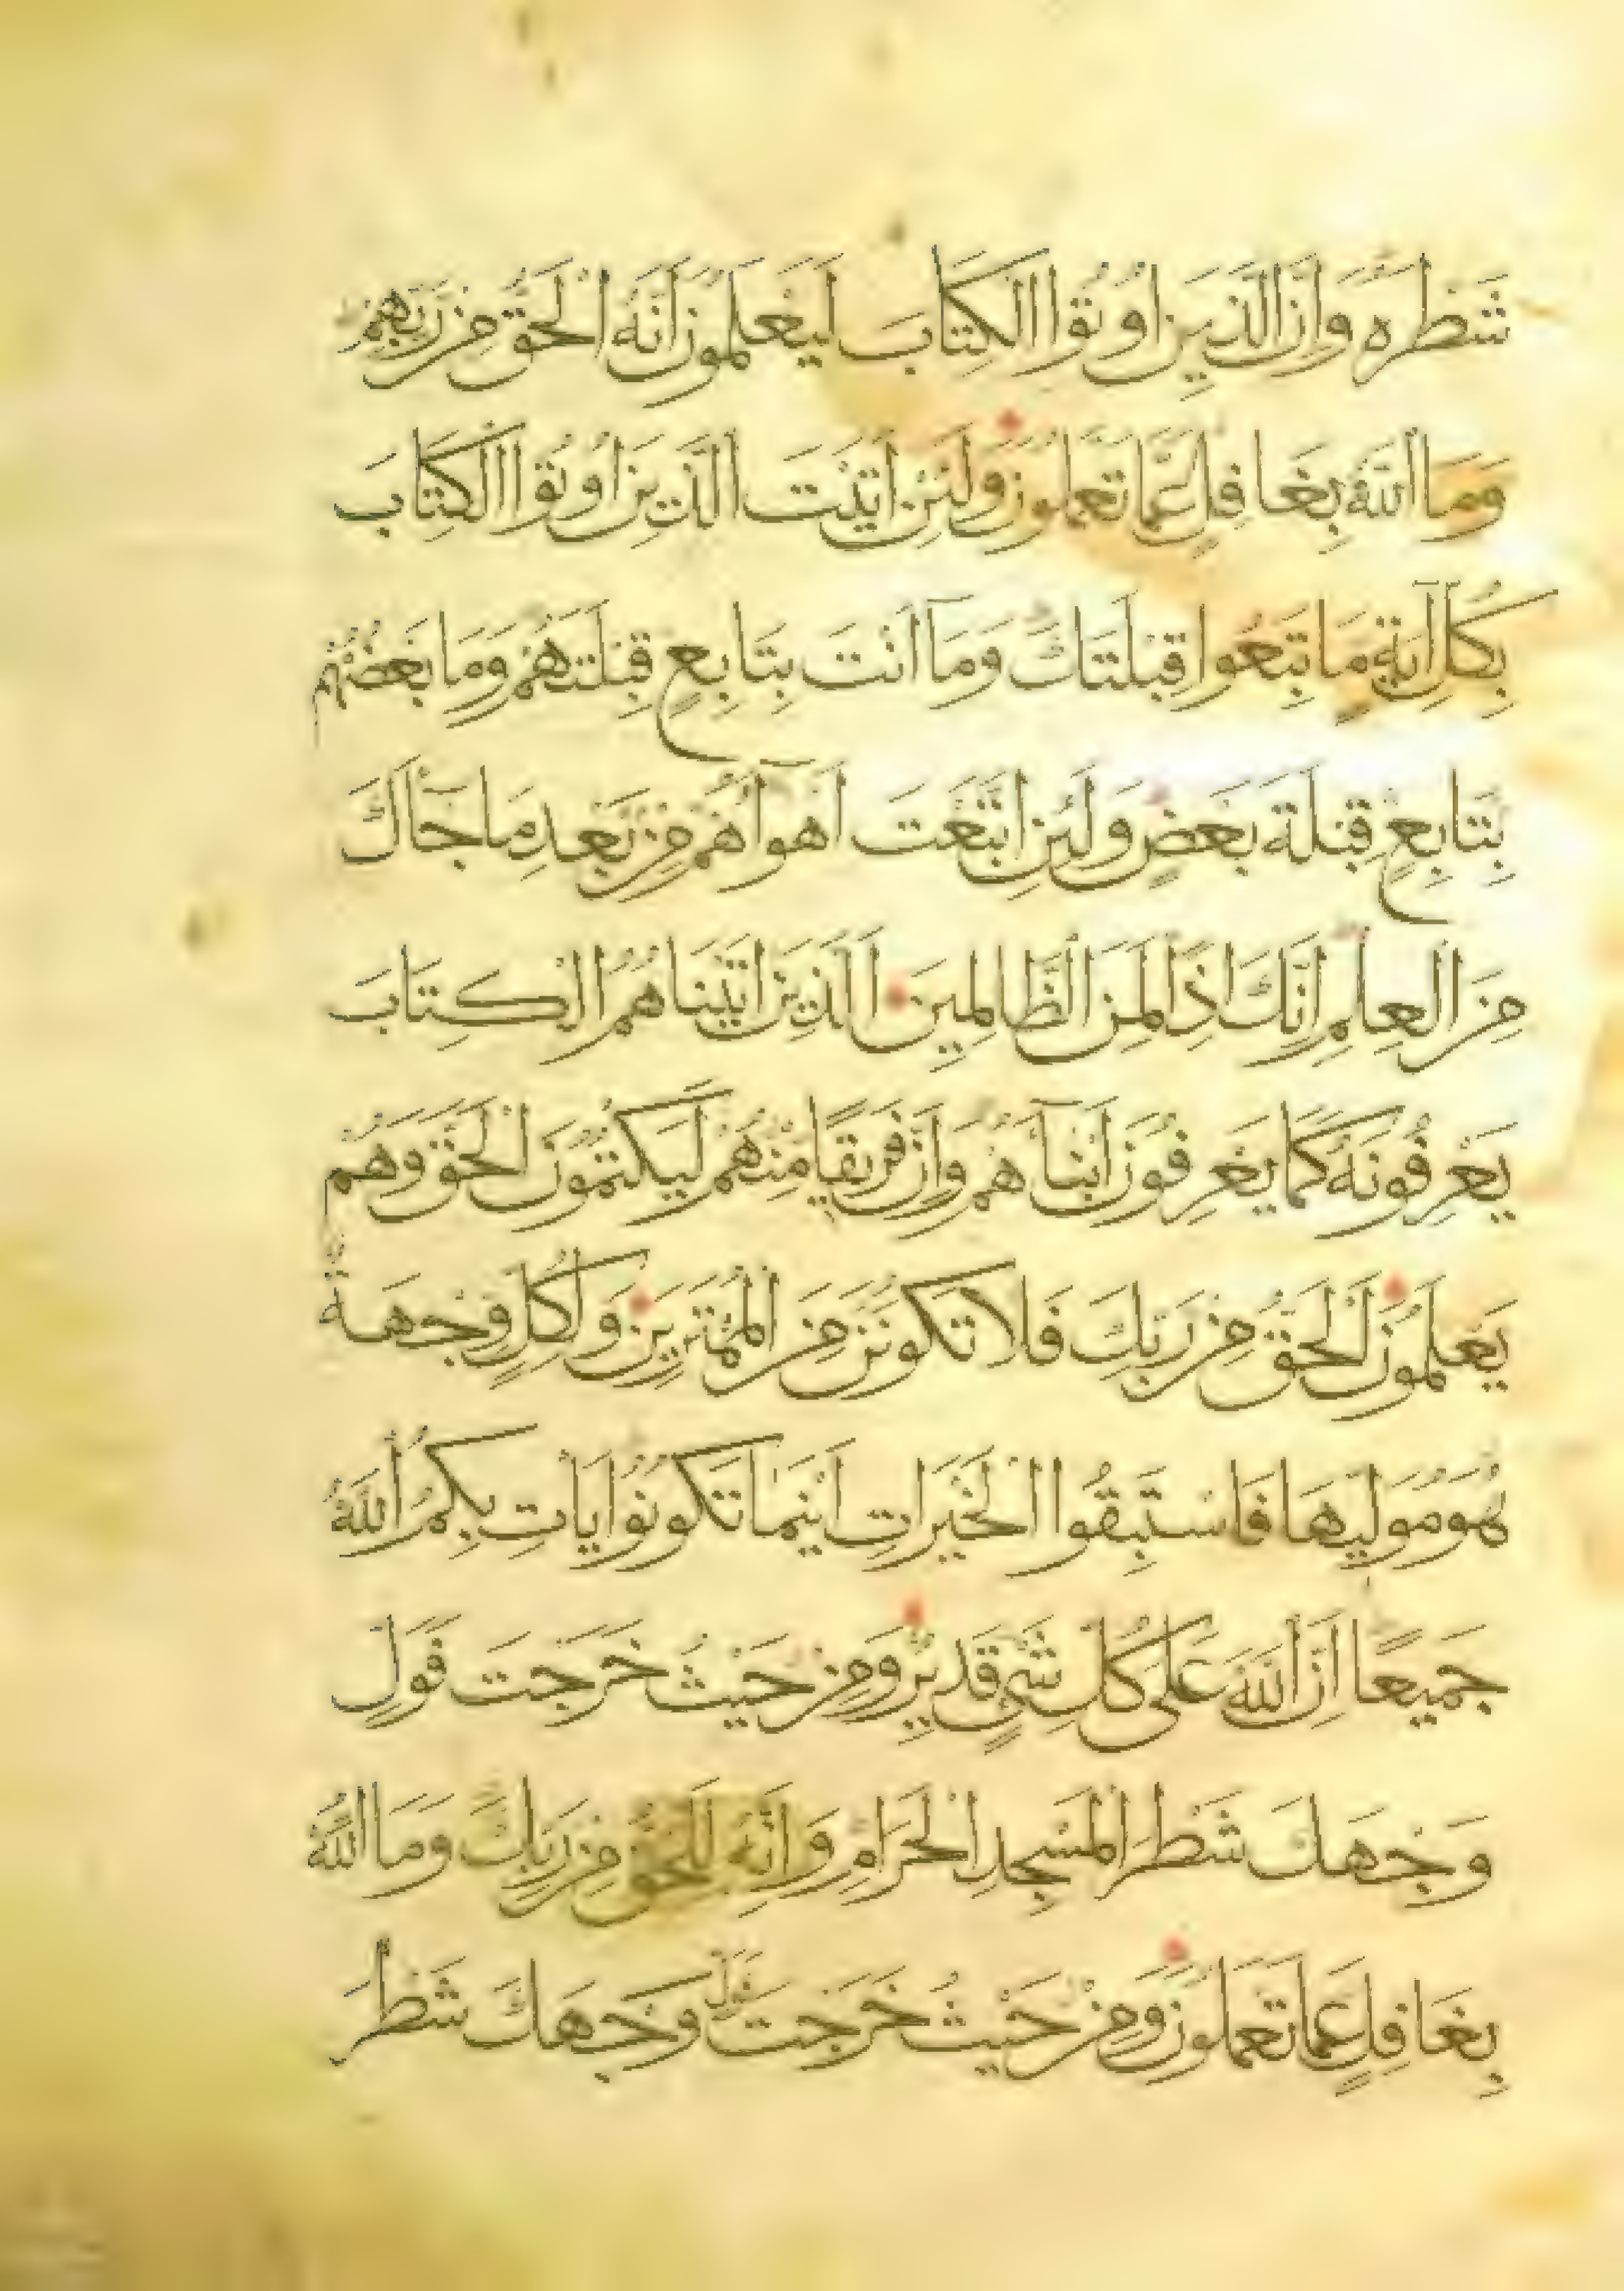 شَطْرَهُ وَاِنَّ الَّذِينَ اُوتُوا الْكِتَابَ لَيَعْلَمُونَ اَنَّهُ الْحَقُّ مِنْ رَبِّهِمْ
وَمَا اللّٰهُ بِغَافِلٍ عَمَّا تَعْمَلُونَ وَلَئِنْ اَتَيْتَ الَّذِينَ اُوتُوا الْكِتَابَ
بِكُلِّ اٰيَةٍ مَا تَبِعُوا قِبْلَتَكَ وَمَا اَنْتَ بِتَابِعٍ قِبْلَتَهُمْ وَمَا بَعْضُهُمْ
بِتَابِعٍ قِبْلَةَ بَعْضٍ وَلَئِنِ اتَّبَعْتَ اَهْوَآءَهُمْ مِنْ بَعْدِ مَا جَآءَكَ
مِنَ الْعِلْمِ اِنَّكَ اِذًا لَمِنَ الظَّالِمِينَ اَلَّذِينَ اٰتَيْنَاهُمُ الْكِتَابَ
يَعْرِفُونَهُ كَمَا يَعْرِفُونَ اَبْنَآءَهُمْ وَاِنَّ فَرِيقًا مِنْهُمْ لَيَكْتُمُونَ الْحَقَّ وَهُمْ
يَعْلَمُونَ اَلْحَقُّ مِنْ رَبِّكَ فَلَا تَكُونَنَّ مِنَ الْمُمْتَرِينَ وَلِكُلٍّ وِجْهَةٌ
هُوَ مُوَلِّيهَا فَاسْتَبِقُوا الْخَيْرَاتِ اَيْنَمَا تَكُونُوا يَأْتِ بِكُمُ اللّٰهُ
جَمِيعًا اِنَّ اللّٰهَ عَلَى كُلِّ شَيْءٍ قَدِيرٌ وَمِنْ حَيْثُ خَرَجْتَ فَوَلِّ
وَجْهَكَ شَطْرَ الْمَسْجِدِ الْحَرَامِ وَاِنَّهُ لَلْحَقُّ مِنْ رَبِّكَ وَمَا اللّٰهُ
بِغَافِلٍ عَمَّا تَعْمَلُونَ وَمِنْ حَيْثُ خَرَجْتَ فَوَلِّ وَجْهَكَ شَطْرَ